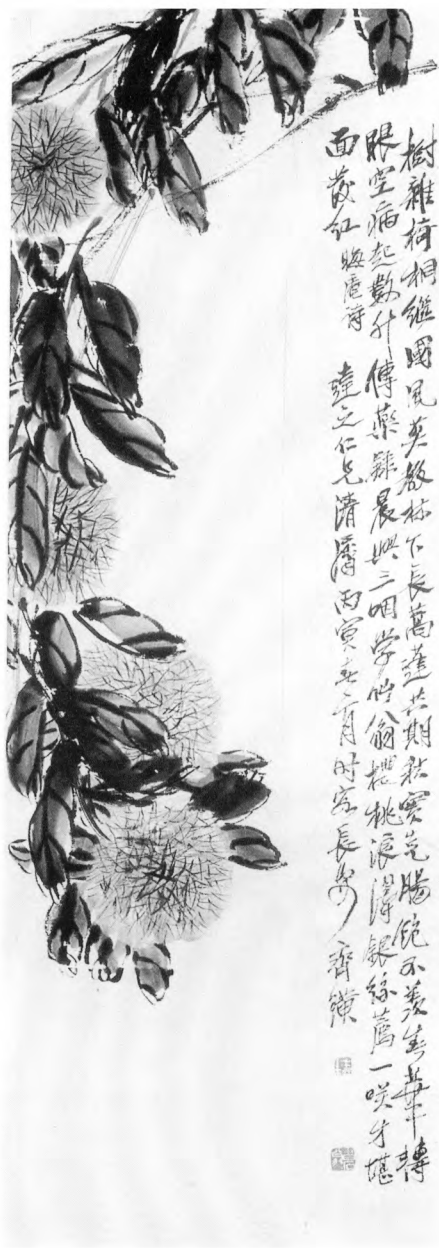 樹雜椅桐繼國風莫教林下長蒿蓬共期秋實充腸飽不羨春華轉
眼空病起數升傳藥錄晨興三咽学仙翁櫻桃浪得銀絲薦一咲才堪
面發紅 晦庵詩 達之仁兄清屬丙寅春二月时客長安 齊璜